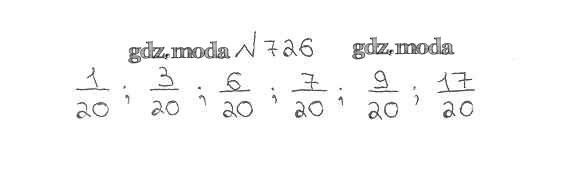 gdz.moda №726 gdz.moda
1/20 ; 3/20 ; 6/20 ; 7/20 ; 9/20 ; 17/20